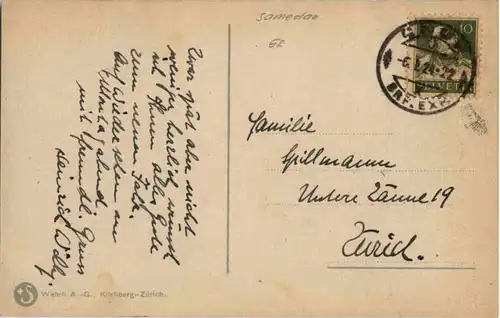 Samedan
GR
Zwar spät aber nicht
weniger herzlich wünscht
ich Ihnen alles Gute
zum neuen Jahr.
Auf Wiedersehen am
Montag abend
mit freundl. Gruss
Heinrich
10
HELVETIA
BRF. EXP.
Familie
Spillmann
Untere Zäune 19
Zürich.
Wehrli A.-G., Kilchberg-Zürich.